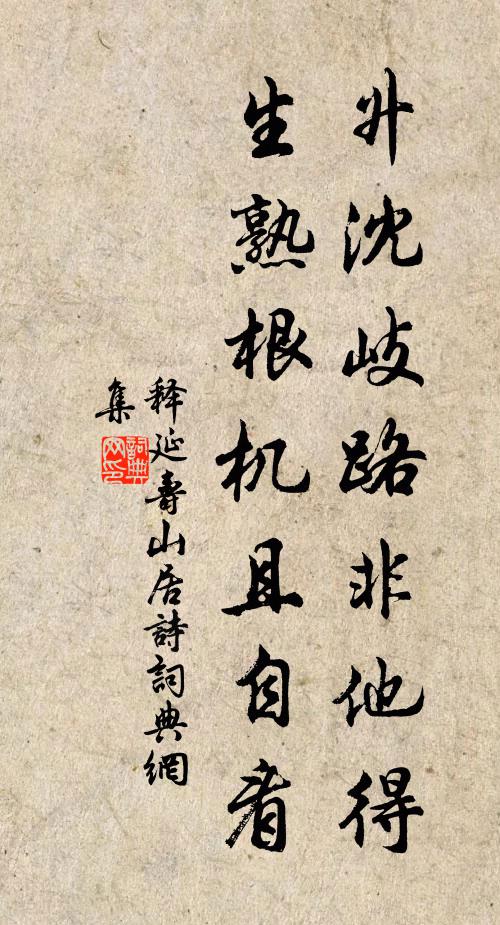 升沈岐路非他得
生熟根机且自看
释延壽山居詩詞典網
集
詞典網印